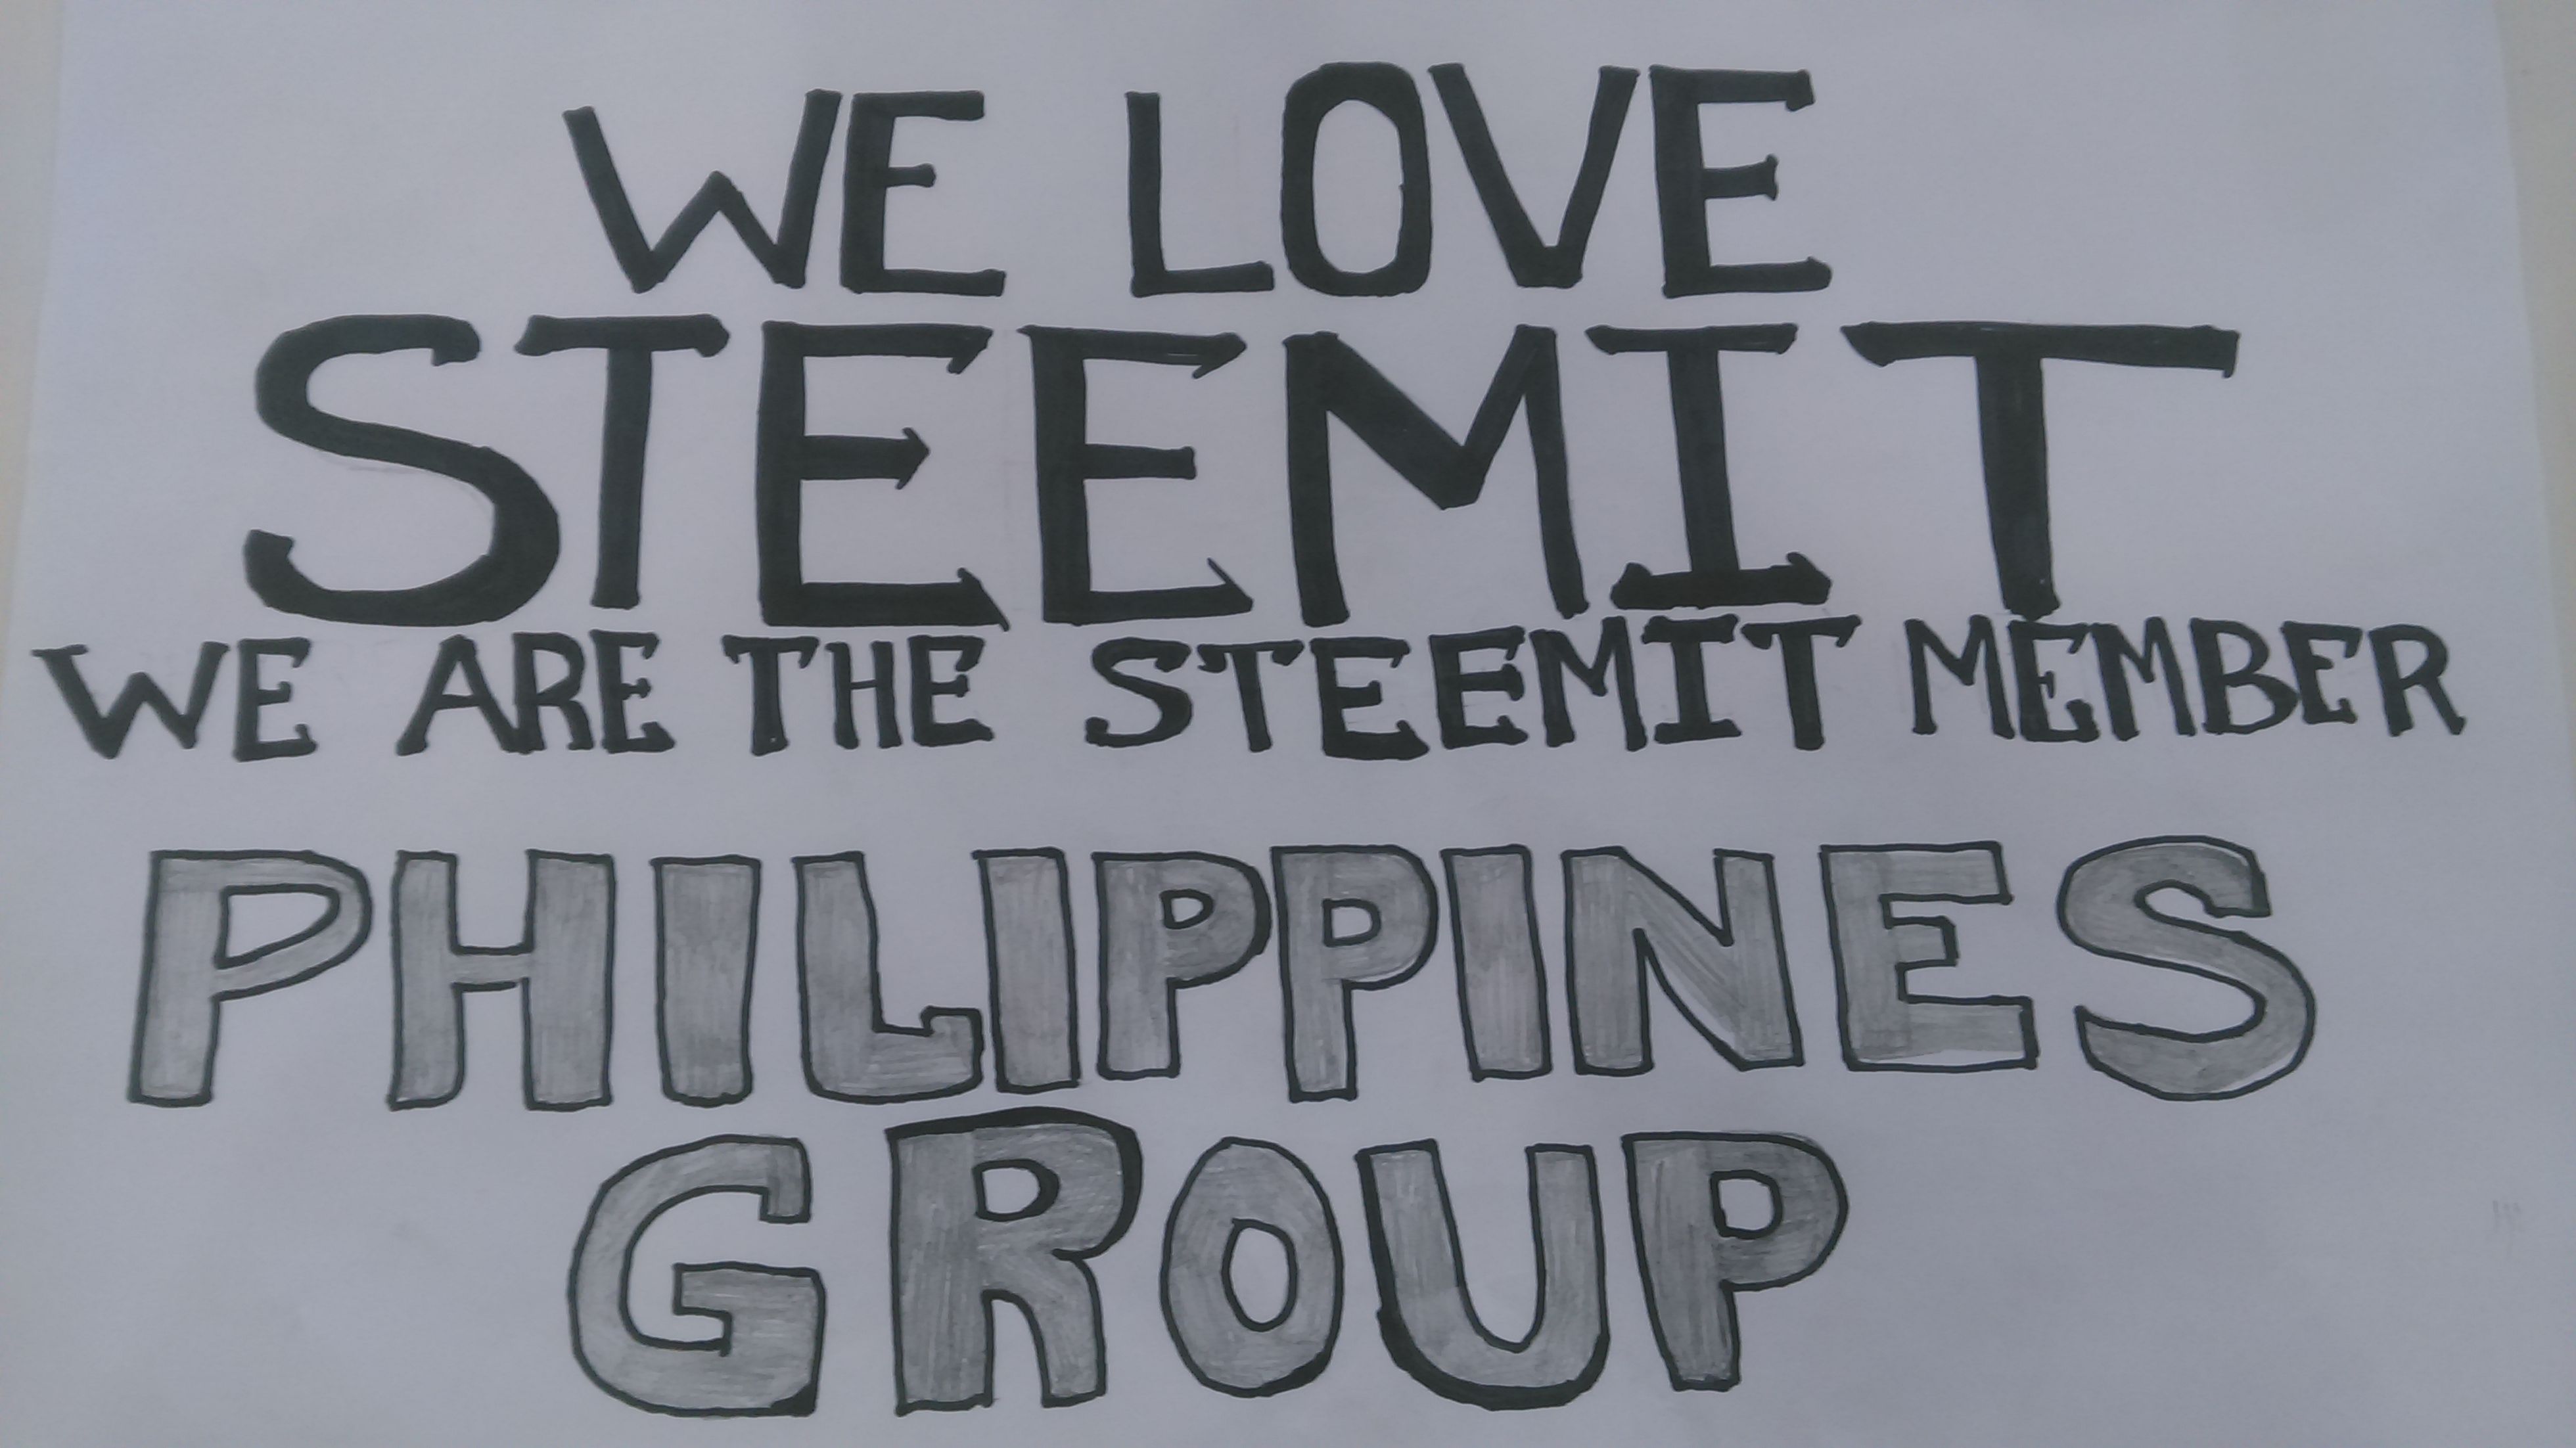 WE LOVE
STEEMIT
WE ARE THE STEEMIT MEMBER
PHILIPPINES
GROUP